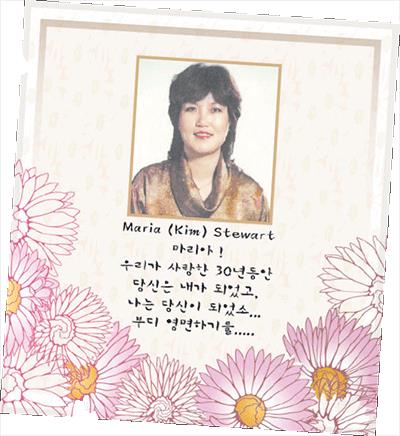 Maria (Kim) Stewart
마리아 !
우리가 사랑한 30년동안
당신은 내가 되었고,
나는 당신이 되었소...
부디 영면하기를.....